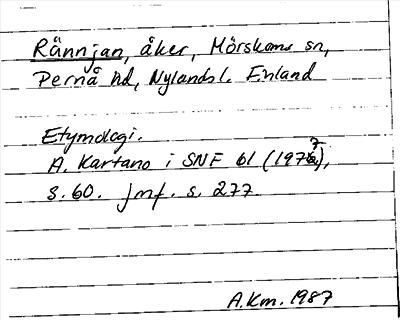 Rännjan, åker, Mörskoms sn,
Pernå hd, Nylands l. Finland
Etymologi.
A. Kartano i SNF 61 (1977),
s. 60. jmf. s. 277.
A.Km. 1987